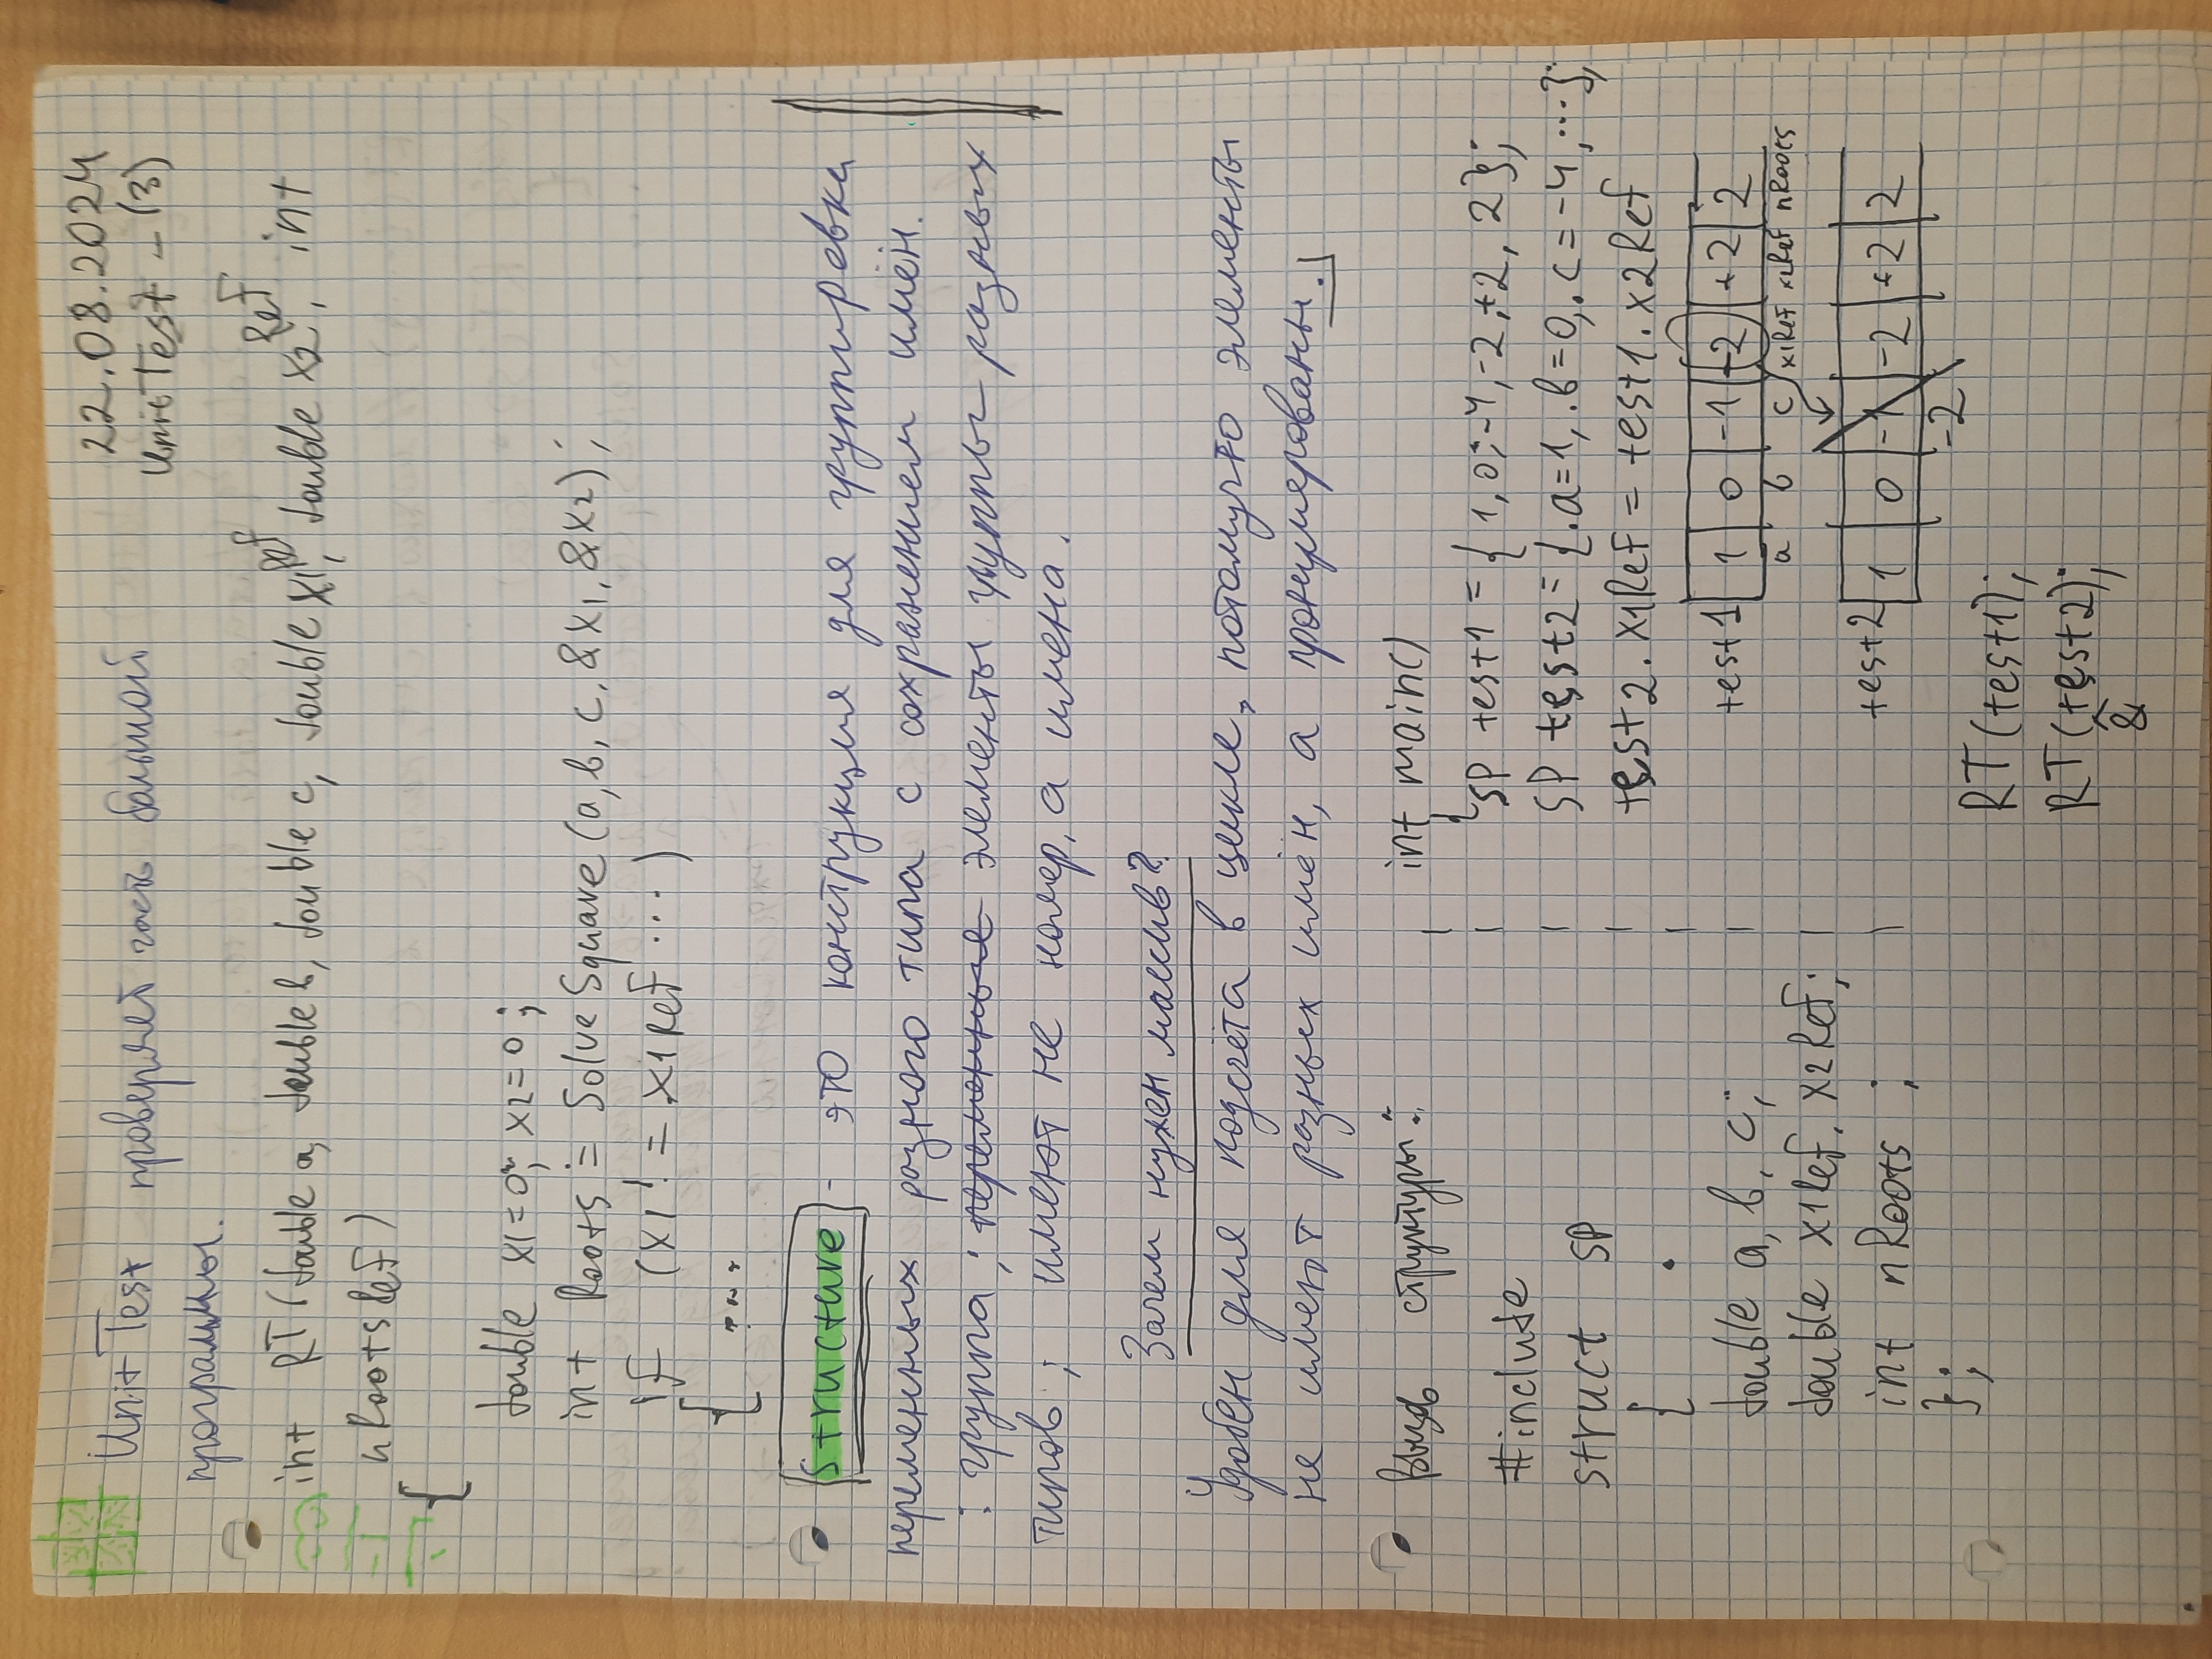 22.08.2024
Unit Test - (3)
UnitTest проверяет часть большой
программы.
int RT(double a, double b, double c, double x1Ref, double x2Ref, int
nRootsRef)
{
double x1=0; x2=0;
int Roots = SolveSquare(a, b, c, &x1, &x2);
if (x1 != x1Ref ...)
{ ....
Structure - это конструкция для группировки
переменных разного типа с сохранением имён.
: группа; переменные элементы группы разных
типов; имеют не номер, а имена.
Зачем нужен массив?
Удобен для подсчёта в цикле, потомучто элементы
не имеют разных имён, а пронумерованы.
Вызов структуры:
#include
struct SP
{
double a, b, c;
double x1Ref, x2Ref;
int nRoots ;
};
int main()
{
SP test1 = { 1, 0, -4, -2, +2, 2 };
SP test2 = {.a=1, .b=0, .c=-4, ...};
test2.x1Ref = test1.x2Ref
test1 1 0 -1 -2 +2 2
a b c x1Ref x2Ref nRoots
test2 1 0 -1 -2 +2 2
-2
RT(test1);
RT(test2);
&